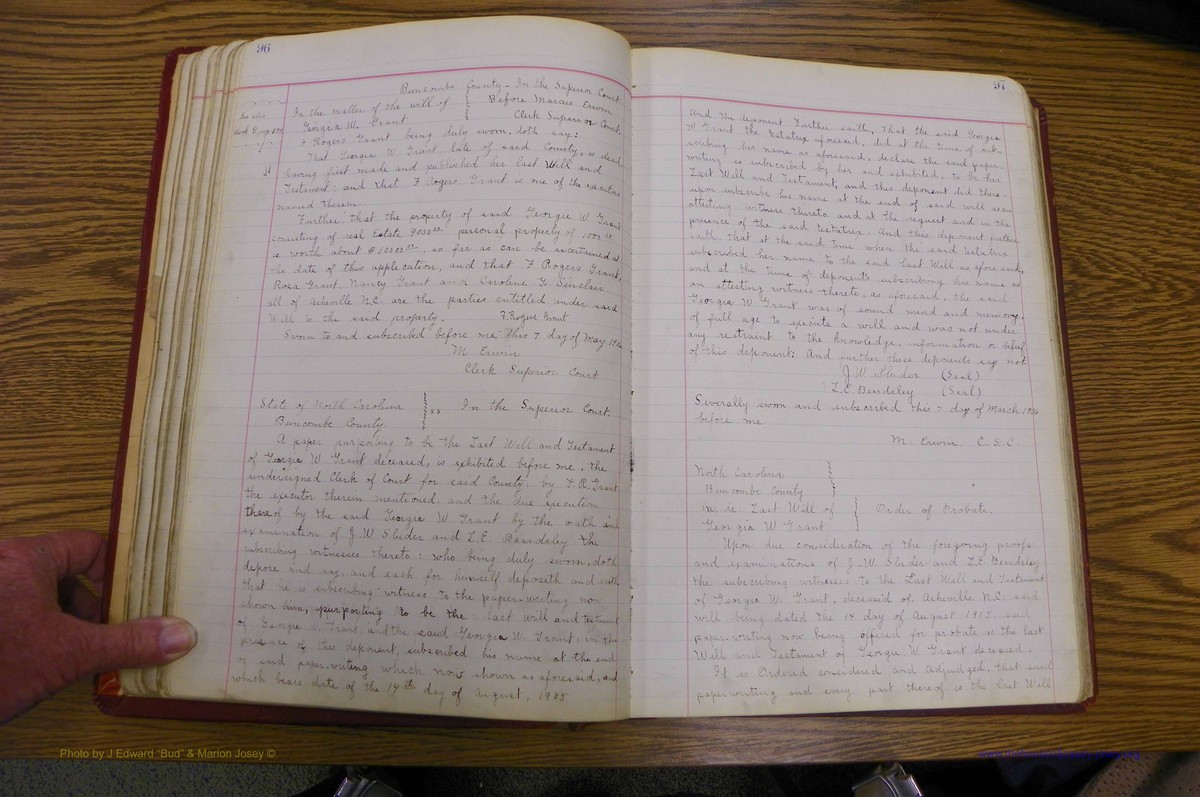 96
Buncombe County - In the Superior Court
In the matter of the will of
Georgia W. Grant
Before Marcus Erwin
Clerk Superior Court,
See also
Book E page
F Rogers Grant being duly sworn, doth say:
That Georgia W Grant late of said County, is dead
having first made and published her last Will and
Testament; and that F Rogers Grant is one of the executors
named therein.
Further: that the property of said Georgia W Grant
consisting of real Estate 9000.00 personal property of 1000.00
is worth about $10000.00, so far as can be ascertained at
the date of this application, and that F Rogers Grant,
Rosa Grant, Nancy Grant and Caroline G. Sinclair
all of Asheville N.C. are the parties entitled under said
Will to the said property.
F. Rogers Grant
Sworn to and subscribed before me, this 7 day of May
M. Erwin
Clerk Superior Court
State of North Carolina
Buncombe County
ss
In the Superior Court
A paper purporting to be the Last Will and Testament
of Georgia W Grant deceased, is exhibited before me, the
undersigned Clerk of Court for said County, by F.R. Grant
the executor therein mentioned, and the due execution
thereof by the said Georgia W Grant by the oath and
examination of J.W Sluder and L.E. Beardsley the
subscribing witnesses thereto; who being duly sworn, doth
depose and say, and each for himself deposeth and saith
that he is subscribing witness to the paper-writing now
shown him, purporting to be the last will and testament
of Georgia W. Grant, and the said Georgia W. Grant, in the
presence of this deponent, subscribed his name at the end
of said paper-writing which now shown as aforesaid, and
which bears date of the 14th day of August, 1905
97
And the deponent Further saith, That the said Georgia
W Grant the testatrix aforesaid, did at the time of sub-
scribing his name as aforesaid, declare the said paper-
writing so subscribed by her and exhibited, to be her
Last Will and Testament, and this deponent did there-
upon subscribe his name at the end of said will as an
attesting witness thereto and at the request and in the
presence of the said testatrix. And this deponent further
saith, that at the said time when the said testatrix
subscribed her name to the said last Will as aforesaid,
and at the time of deponent's subscribing his name as
an attesting witness thereto, as aforesaid, the said
Georgia W Grant was of sound mind and memory,
of full age to execute a will and was not under
any restraint to the knowledge, information or belief
of this deponent: And further these deponents say not
J W Sluder (Seal)
L.E. Bendeley (Seal)
Severally sworn and subscribed this 7 day of March
before me
M. Erwin, C.S.C.
North Carolina
Buncombe County
In re. Last Will of
Georgia W Grant
Order of Probate.
Upon due consideration of the foregoing proofs
and examinations of J.W. Sluder and L.E. Bendeley
the subscribing witnesses to the Last Will and Testament
of Georgia W. Grant, deceased of, Asheville N.C. said
will being dated the 14 day of August 1905. said
paper-writing now being offered for probate as the last
Will and Testament of Georgia W Grant deceased.
It is Ordered considered and adjudged, that said
paperwriting and every part thereof is the last Will
Photo by J Edward "Bud" & Marion Josey ©